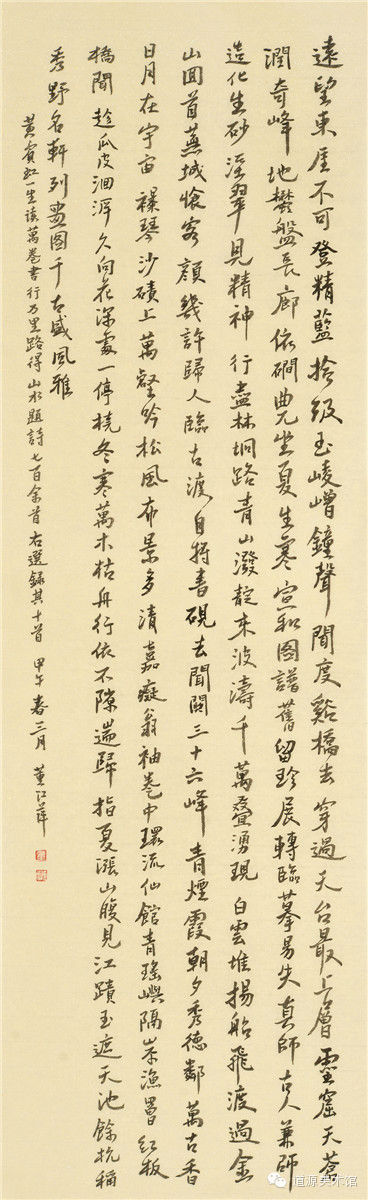 遠望東厓不可登精藍拾級玉崚嶒鐘聲聞度谿橋去穿過天台最上層靈窟天蒼
潤奇峰地欎盤長廊依磵曲兀坐夏生寒宣和圖譜舊留珍展轉臨摹易失真師古人兼師
造化生砂淫翠見精神行盡林坰路青山潑靛來波濤千萬叠湧現白雲堆揚船飛渡過金
山回首蕪城愴客顏幾許歸人臨古渡自攜書硯去聞關三十六峰青煙霞朝夕秀德鄰萬古香
日月在宇宙襆琴沙磧上萬壑吟松風布景多清嘉癡翁袖卷中環流仙館青瑤嶼隔岸漁罾紅板
橋聞趁瓜皮洄溆久向花深處一停橈冬寒萬木枯舟行依石隙遄歸指夏漲山腹見江蹟玉遮天池餘杭稱
秀野名軒列畫圖千古盛風雅
黃賓虹一生讀萬卷書行万里路得山水題詩七百余首右選錄其十首 甲午春三月 董江萍
道源美术馆